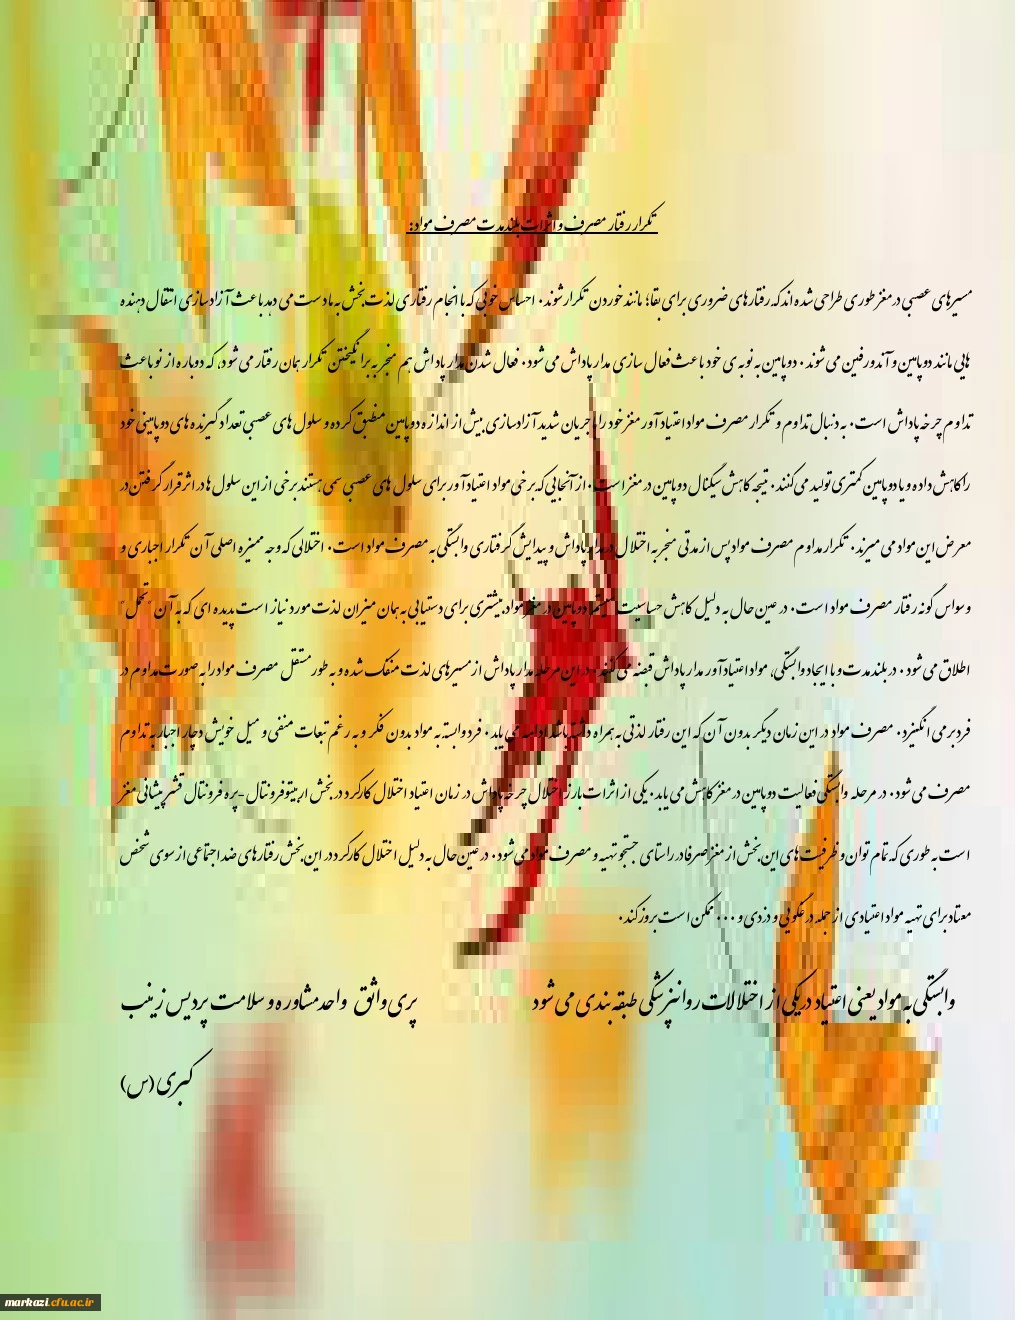 تکرار رفتار مصرف و اثرات بلند مدت مصرف مواد:
مسیرهای عصبی در مغز طوری طراحی شده اند که رفتارهای ضروری برای بقا؛ مانند خوردن تکرار شوند. احساس خوبی که با انجام رفتاری لذت بخش به ما دست می دهد باعث آزادسازی انتقال دهنده
هایی مانند دوپامین و آندورفین می شوند. دوپامین به نوبه ی خود باعث فعال سازی مدار پاداش می شود. فعال شدن مدار پاداش هم منجر به برانگیختن تکرار همان رفتار می شود، که دوباره از نو باعث
تداوم چرخه پاداش است. به دنبال تداوم و تکرار مصرف مواد اعتیاد آور مغز خود را با جریان شدید آزادسازی بیش از اندازه دوپامین منطبق کرده و سلول های عصبی تعداد گیرنده های دوپامینی خود
را کاهش داده و یا دوپامین کمتری تولید می کنند. نتیجه کاهش سیگنال دوپامین در مغز است. از آنجایی که برخی مواد اعتیادآور برای سلول های عصبی سمی هستند برخی از این سلول ها در اثر قرار گرفتن در
معرض این مواد می میرند. تکرار مداوم مصرف مواد پس از مدتی منجر به اختلال در مدار پاداش و پیدایش گرفتاری وابستگی به مصرف مواد است. اختلالی که وجه ممیزه اصلی آن تکرار اجباری و
وسواس گونه رفتار مصرف مواد است. در عین حال به دلیل کاهش حساسیت سیستم دوپامین در مغز مواد بیشتری برای دستیابی به همان میزان لذت مورد نیاز است پدیده ای که به آن "تحمل"
اطلاق می شود. در بلند مدت و با ایجاد وابستگی، مواد اعتیادآور مدار پاداش قبضه می کنند. در این مرحله مدار پاداش از مسیرهای لذت منفک شده و به طور مستقل مصرف مواد را به صورت مداوم در
فرد بر می انگیزد. مصرف مواد در این زمان دیگر بدون آن که این رفتار لذتی به همراه داشته باشد ادامه می یابد. فرد وابسته به مواد بدون فکر و به رغم تبعات منفی و میل خویش دچار اجبار به تداوم
مصرف می شود. در مرحله وابستگی فعالیت دوپامین در مغز کاهش می یابد. یکی از اثرات بارز اختلال چرخه پاداش در زمان اعتیاد اختلال کارکرد در بخش اربیتوفرونتال-پره فرونتال قشر پیشانی مغز
است به طوری که تمام توان و ظرفیت های این بخش از مغز صرفا در راستای جستجو تهیه و مصرف مواد می شود. در عین حال به دلیل اختلال کارکرد در این بخش رفتارهای ضد اجتماعی از سوی شخص
معتاد برای تهیه مواد اعتیادی از جمله دروغگویی و دزدی و ... ممکن است بروز کند.
وابستگی به مواد یعنی اعتیاد در یکی از اختلالات روانپزشکی طبقه بندی می شود پری واثق واحد مشاوره و سلامت پردیس زینب
کبری (س)
markazi.cfu.ac.ir